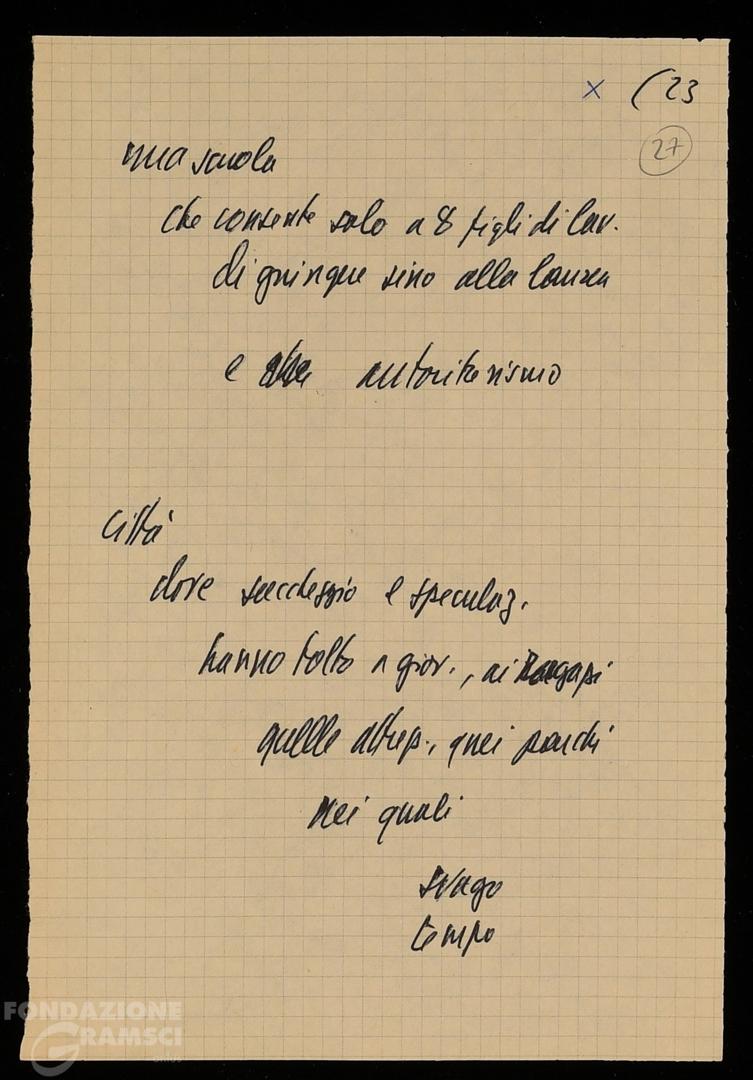 x (23
27
una scuola
che consente solo a 8 figli di lav.
di giungere sino alla laurea
e autoritarismo
Città
dove saccheggio e speculaz.
hanno tolto a giov., ai ragazzi
quelle attrez., quei parchi
nei quali
svago
tempo
FONDAZIONE
GRAMSCI
onlus